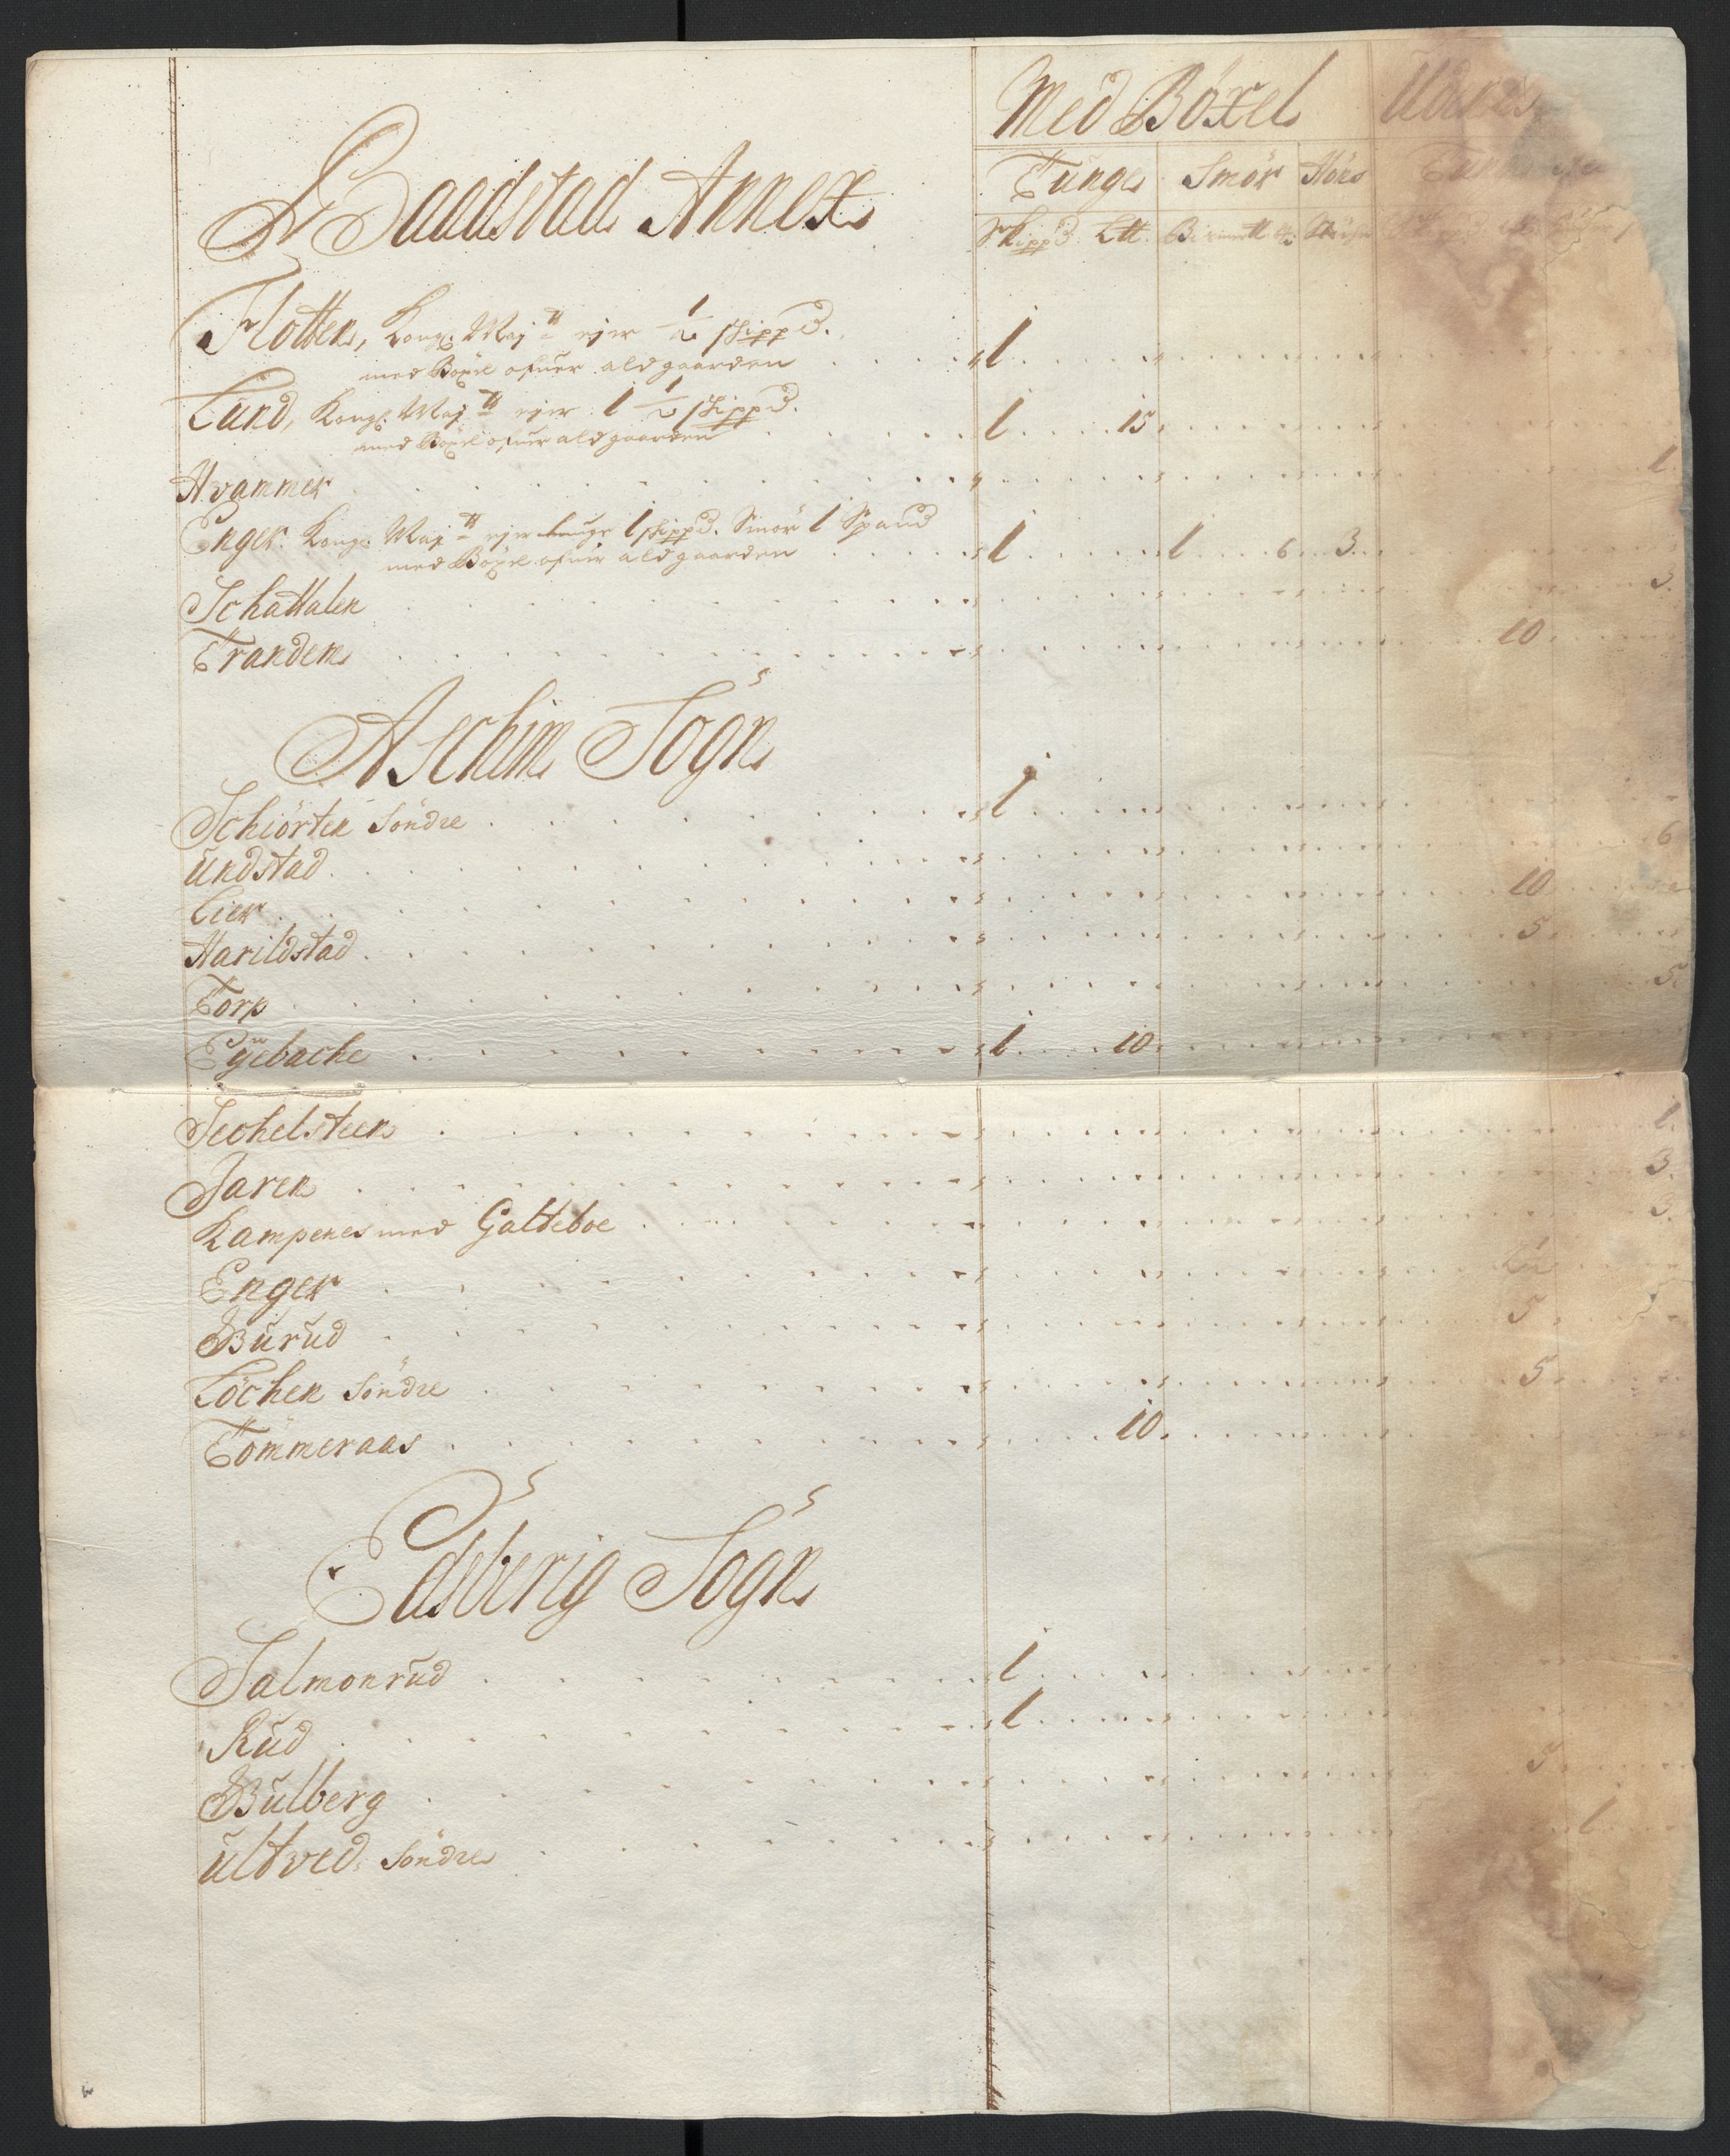 Med Böxel Uden
Tunge Smör Höns
Skippd. L℔. Bismerℳ
Baadstad Annex
Flotten, Kongl. Maytt ejer ½ skippd.
med Böxel ofuer ald gaarden 1
Lund, Kongl. Maytt ejer 1 ½ skippd.
med Böxel ofuer ald gaarden 1 15
Hvammer 1
Enger. Kongl. Maytt ejer tunge 1 skippd. Smör 1 Spand
med Böxel ofuer ald gaarden 1 1 6 3
Schattalen 3
Trandem 10
Aschim Sogn
Schiörten Söndre 1
Undstad 6
Lier 10
Harildstad 5
Torp 5
Eyebache 1 10
Sechelsteen 1
Jaren 3
Kampenes med Galteboe 3
Enger
Burud 5
Löchen Söndre 5
Tömmeraas 10
Edsberig Sogn
Salmonrud 1
Rud 1
Bulberg 5
Ultved Söndre 1